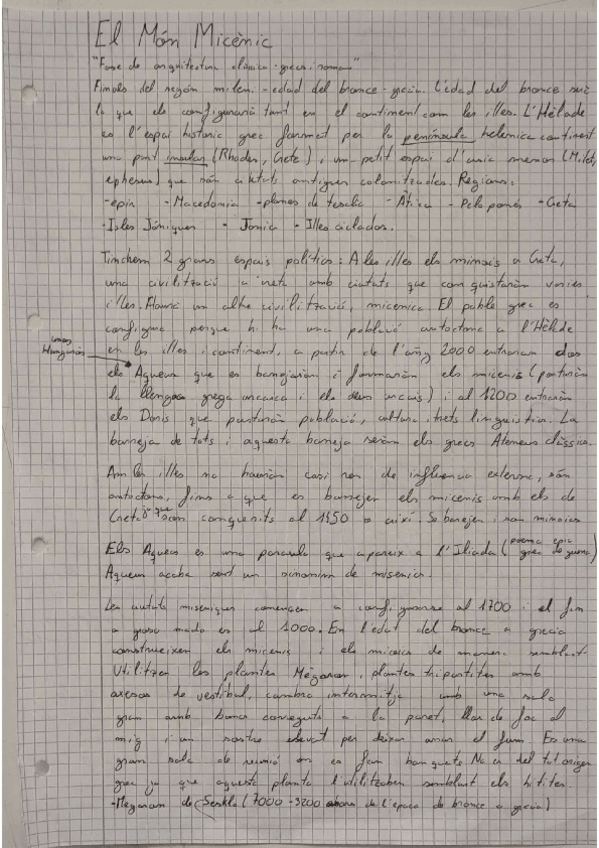 El Món Micènic
"Fase de arquitectura clàssica - greco i romana"
Finals del segón mileni - edad del bronce - grecia. L'edad del bronce serà
la que els configurarà tant en el continent com les illes. L'Hèlade
es l'espai historic grec format per la península helenica continent
una part insular (Rhodes, Creta), un petit espai d'asia menor (Milet,
ephesus) que són ciutats antigues colonitzades. Regions:
-epir - Macedonia - planes de tesalia - Àtica - Peloponés - Creta
-Isles Jóniques - Jonia - Illes ciclades.
Tindrem 2 grans espais politics: A les illes els minoics a Creta,
una civilització a creta amb ciutats que conquistaran varies
illes. Haurà un altre civilització, micenica. El poble grec es
configura perque hi ha una població autoctona a l'Hèlade
en les illes i continent, a partir de l'any 2000 entraran dos
els Aqueus que es barrejaran i formaràn els micenis (portaràn
la llengua grega arcaica i els deus arcais) i al 1200 entraràn
els Doris que portaràn població, cultura, trets linguistics. La
barreja de tots i aquesta barreja seràn els grecs Atenesus clàssics.
Am les illes no hauràn casi res de influencia externa, són
autoctons, fins a que es barrejen els micenis amb els de
Creta que són conquerits al 1450 o així. Se barejen i son minoics
Els Aqueus es una paraula que apareix a l'Iliada (poema epic grec de guerra)
Aqueus acaba sent un sinonim de micenics.
Les ciutats miseniques comencen a configurarse al 1700 i el fin
a groso modo es el 1000. En l'edat del bronce a grecia
construeixen els micenis i els minoics de manera semblant.
Utilitzen les plantes Mégaron, plantes tripartites amb
accesos de vestíbul, cambra intermitja amb una sala
gran amb bancs correguts a la paret, llar de foc al
mig i un sostre elevat per deixar anar el fum. Es una
gran sala de reunió on es fan banquets. No es del tot origen
grec ja que aquesta planta l'utilitzaben semblant els hitites.
-Megaron de Sesklo (7000 - 3200 abans de l'epoca de bronce a grecia)